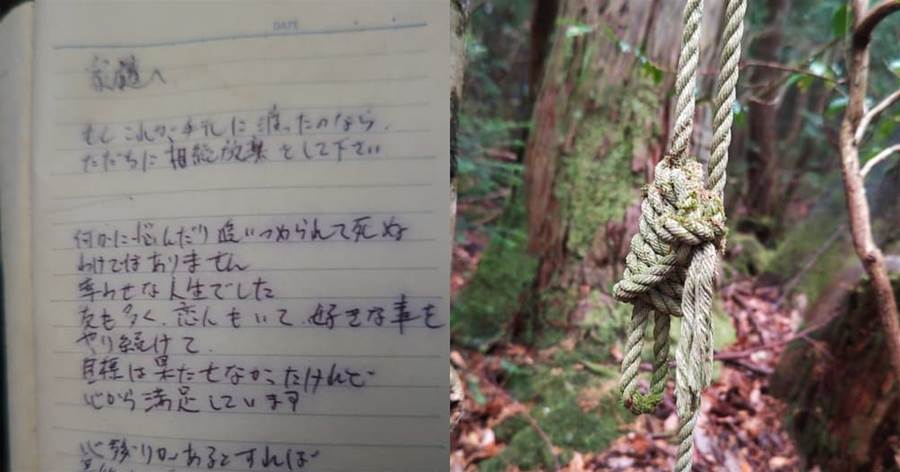 DATE
家族へ
もしこれが手元に渡ったのなら、
ただちに相続放棄をして下さい
何かに悩んだり追いつめられて死ぬ
わけではありません
幸わせな人生でした
友も多く、恋人もいて、好きな事を
やり続けて、
目標は果たせなかったけれど
心から満足しています
心残りがあるとすれば